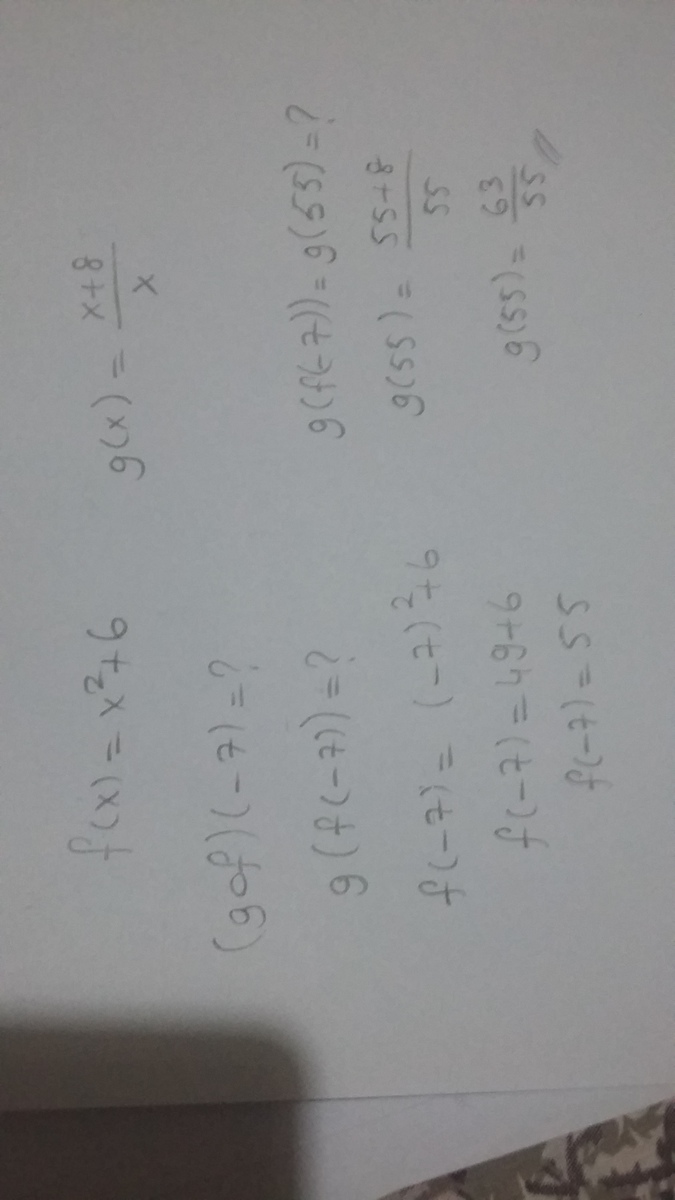 f(x) = x²+6
g(x) = (x+8)/x
(gof)(-7)=?
g(f(-7))=?
f(-7) = (-7)²+6
f(-7) = 49+6
f(-7) = 55
g(f(-7)) = g(55) = ?
g(55) = (55+8)/55
g(55) = 63/55 //